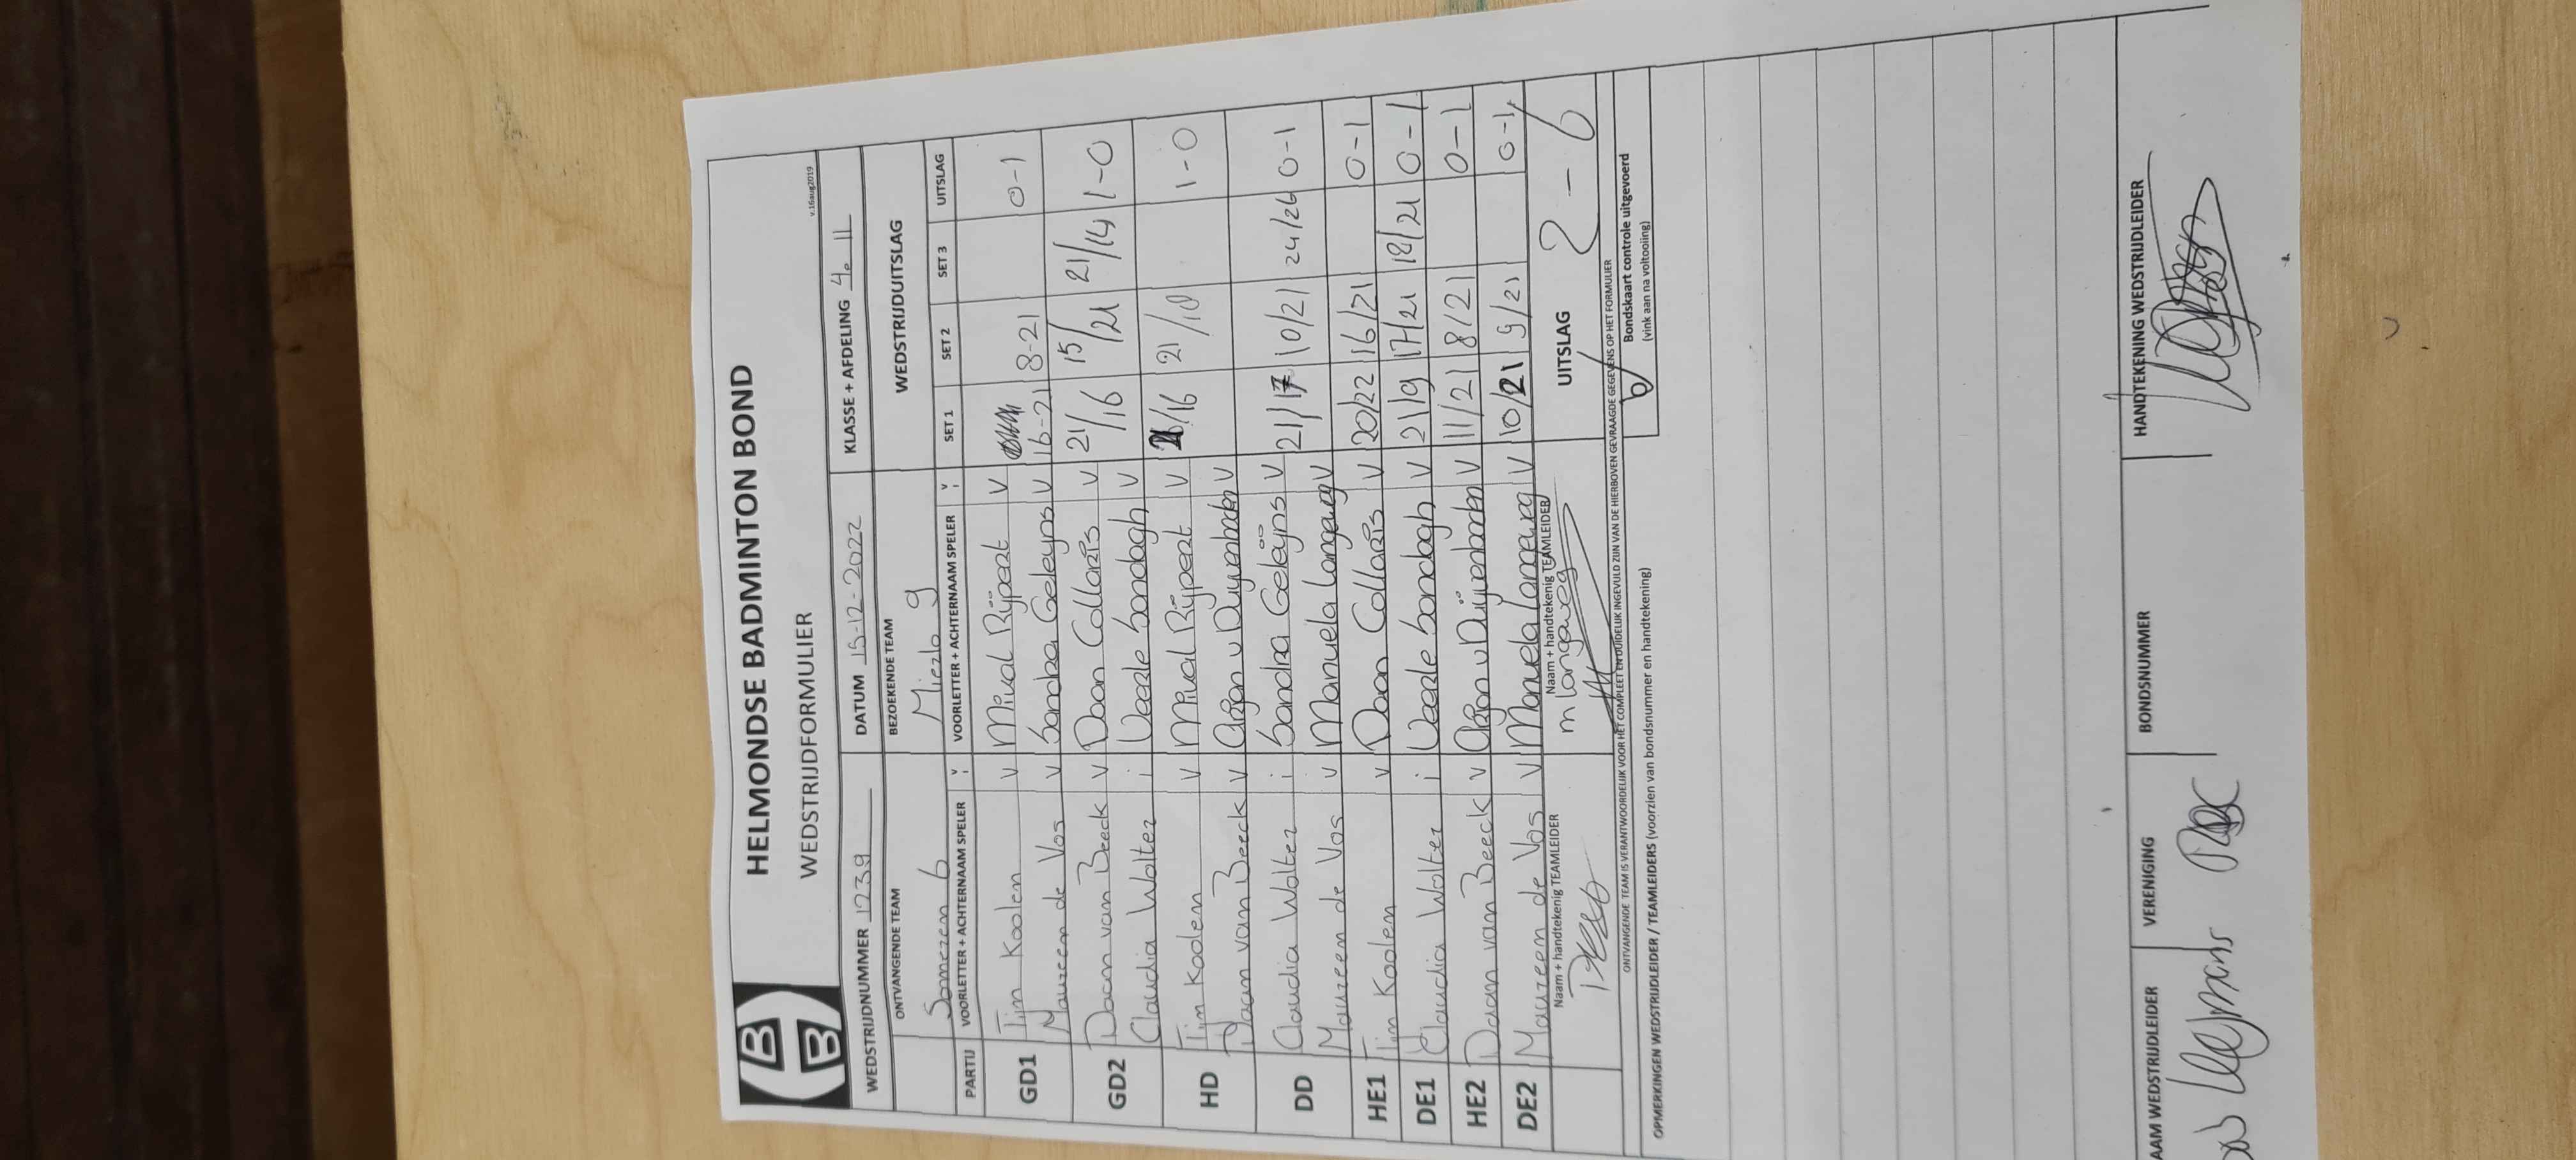 HELMONDSE BADMINTON BOND
WEDSTRIJDFORMULIER
v.16aug2019
WEDSTRIJDNUMMER 1239 DATUM 15-12-2022 KLASSE + AFDELING 4e 11
ONTVANGENDE TEAM BEZOEKENDE TEAM WEDSTRIJDUITSLAG
Someren 6 Mierlo 9
PARTIJ VOORLETTER + ACHTERNAAM SPELER V/I VOORLETTER + ACHTERNAAM SPELER V/I SET 1 SET 2 SET 3 UITSLAG
GD1 Tijn Koolen v Mival Rijpert V 16-21 8-21 0-1
Maureen de Vos v Sandra Geleijns V
GD2 Daan van Beeck v Daan Collaris V 21/16 15/21 21/14 1-0
Claudia Wolter i Veerle Sondagh V
HD Tijn Koolen v Mival Rijpert V 21/16 21/18 1-0
Daan van Beeck v Arjan v Duijenboden V
DD Claudia Wolter i Sandra Geleijns V 21/17 10/21 24/26 0-1
Maureen de Vos v Manuela Langeweg V
HE1 Tijn Koolen v Daan Collaris V 20/22 16/21 0-1
DE1 Claudia Wolter i Veerle Sondagh V 21/9 17/21 18/21 0-1
HE2 Daan van Beeck v Arjan v Duijenboden V 11/21 8/21 0-1
DE2 Maureen de Vos v Manuela Langeweg V 10/21 9/21 0-1
Naam + handtekenig TEAMLEIDER Naam + handtekenig TEAMLEIDER UITSLAG 2-6
m langeweg
ONTVANGENDE TEAM IS VERANTWOORDELIJK VOOR HET COMPLEET EN DUIDELIJK INGEVULD ZIJN VAN DE HIERBOVEN GEVRAAGDE GEGEVENS OP HET FORMULIER
Bondskaart controle uitgevoerd
(vink aan na voltooiing)
OPMERKINGEN WEDSTRIJDLEIDER / TEAMLEIDERS (voorzien van bondsnummer en handtekening)
AAM WEDSTRIJDLEIDER VERENIGING BONDSNUMMER HANDTEKENING WEDSTRIJDLEIDER